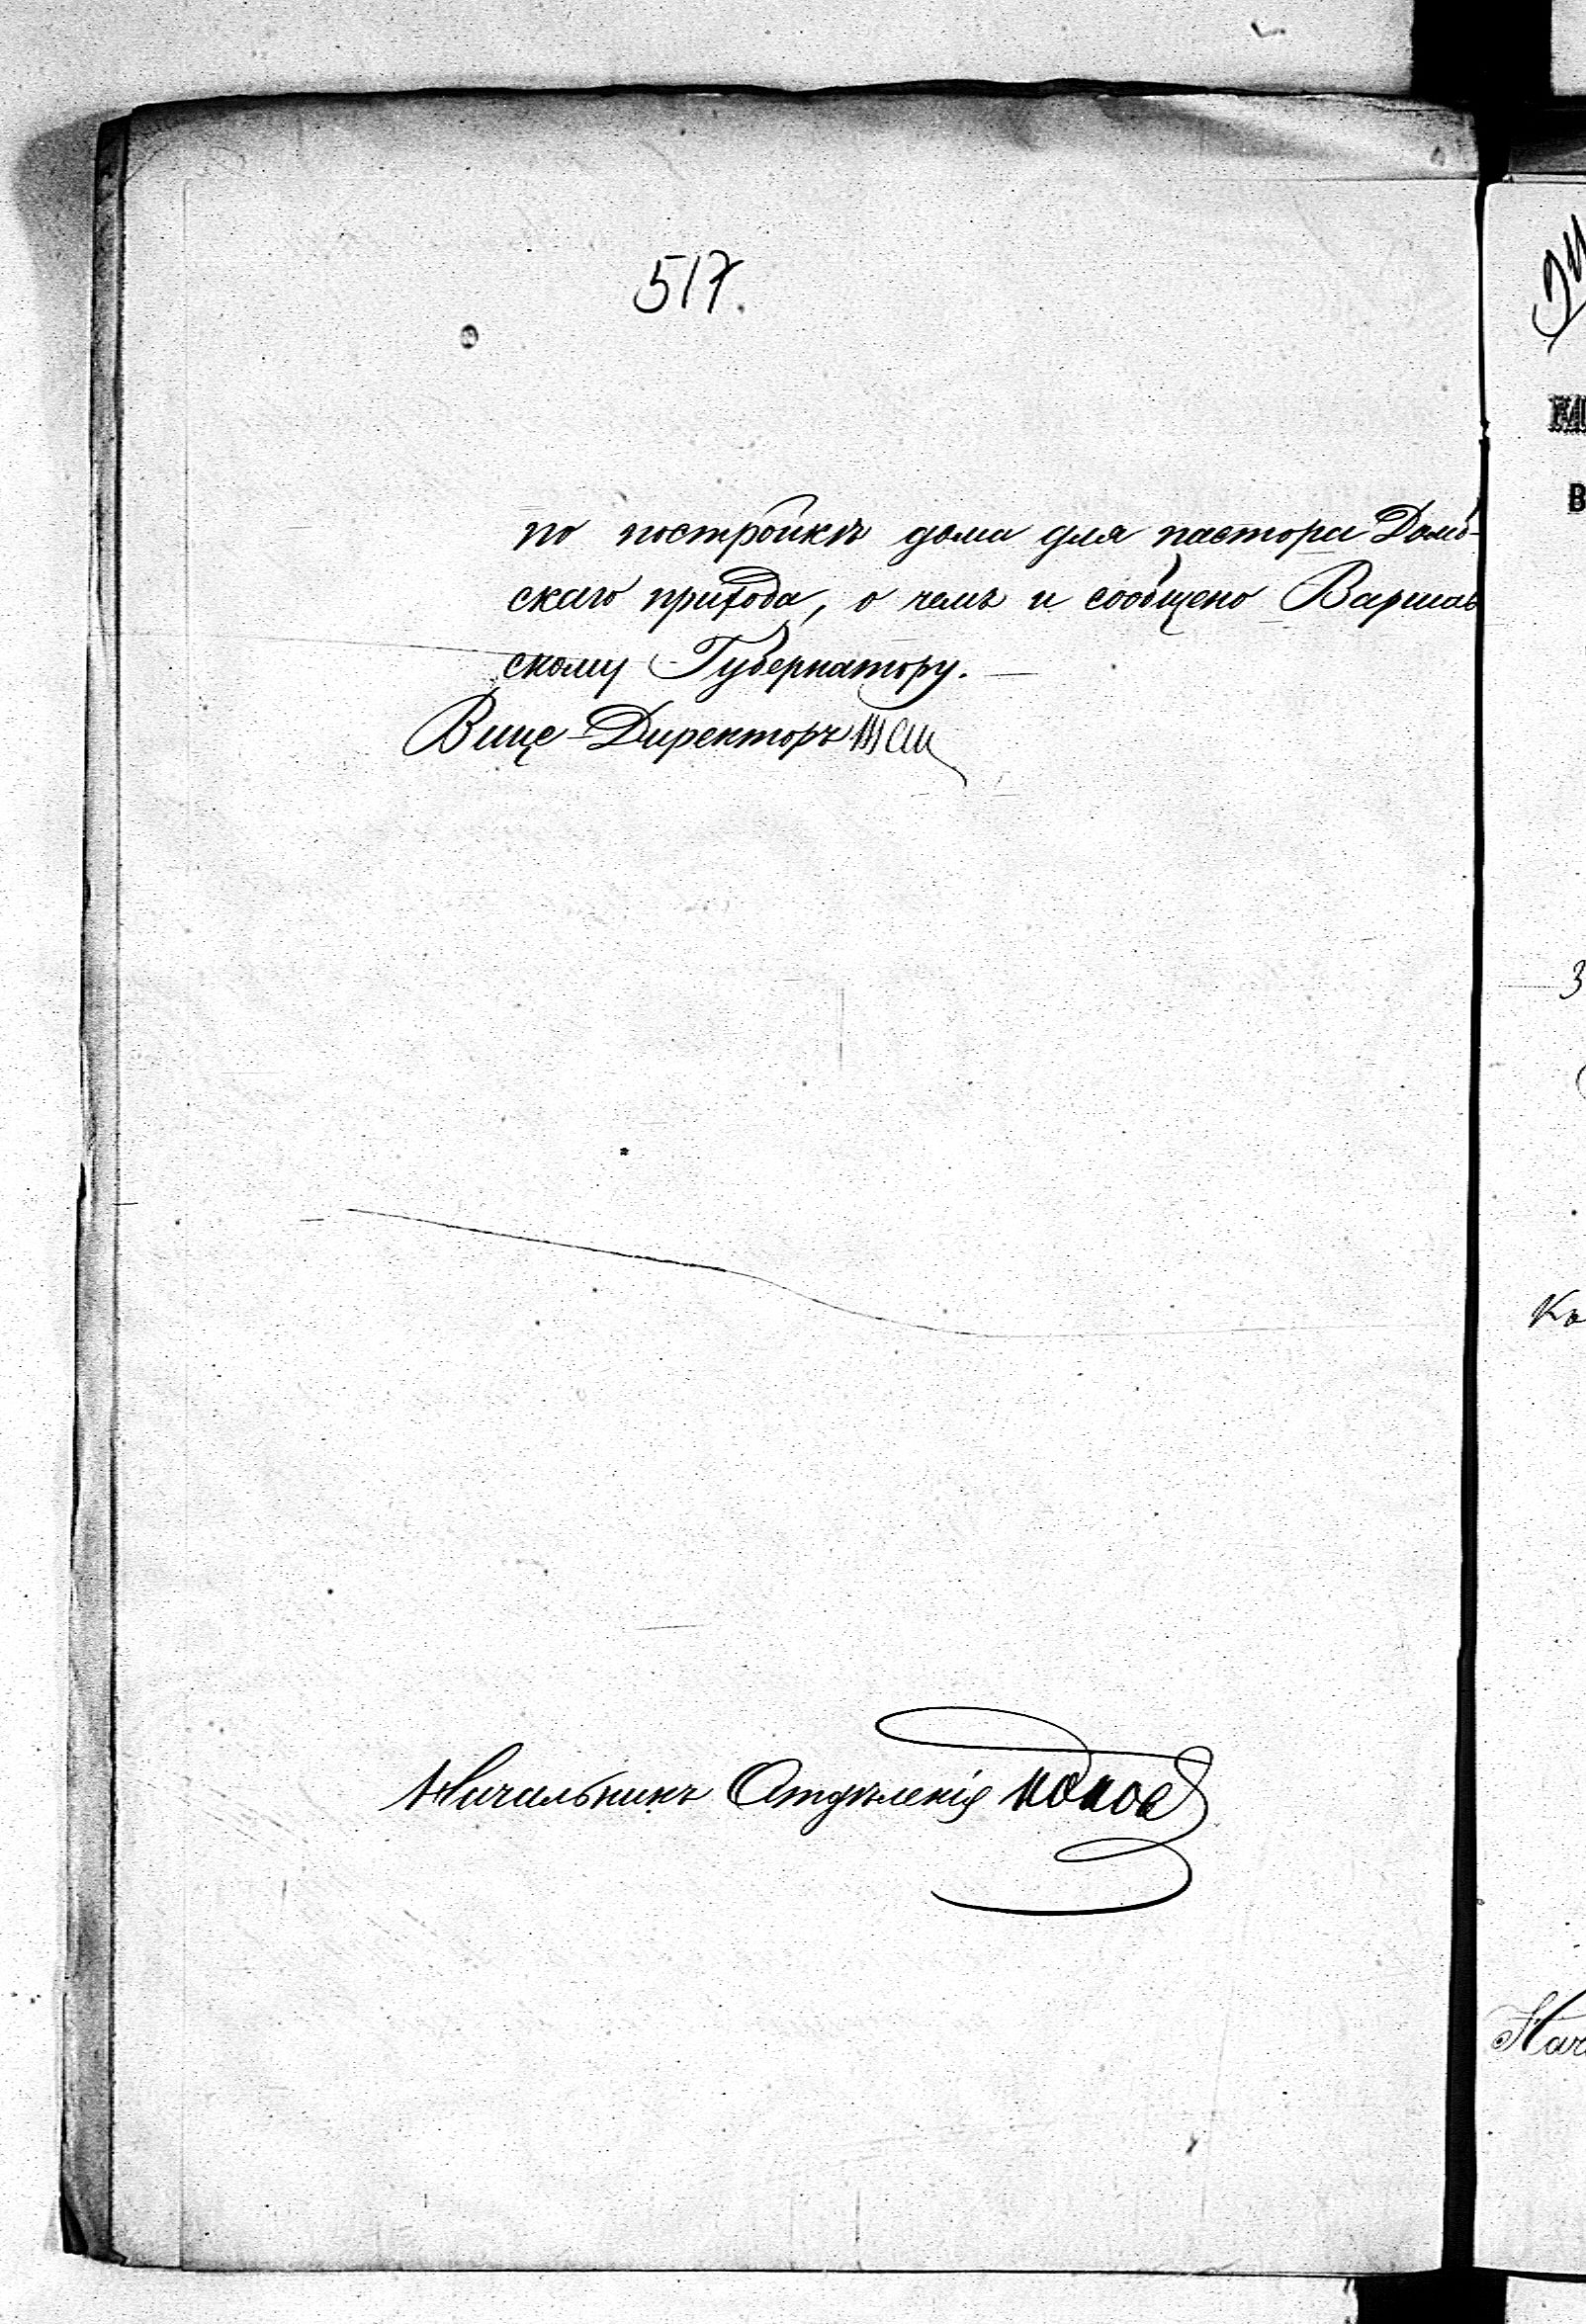 517.
по постройкѣ дома для пастора Домб-
скаго прихода, о чемъ и сообщено Варшав
скому Губернатору. —
Вице-Директоръ
Начальникъ Отдѣленія Попов